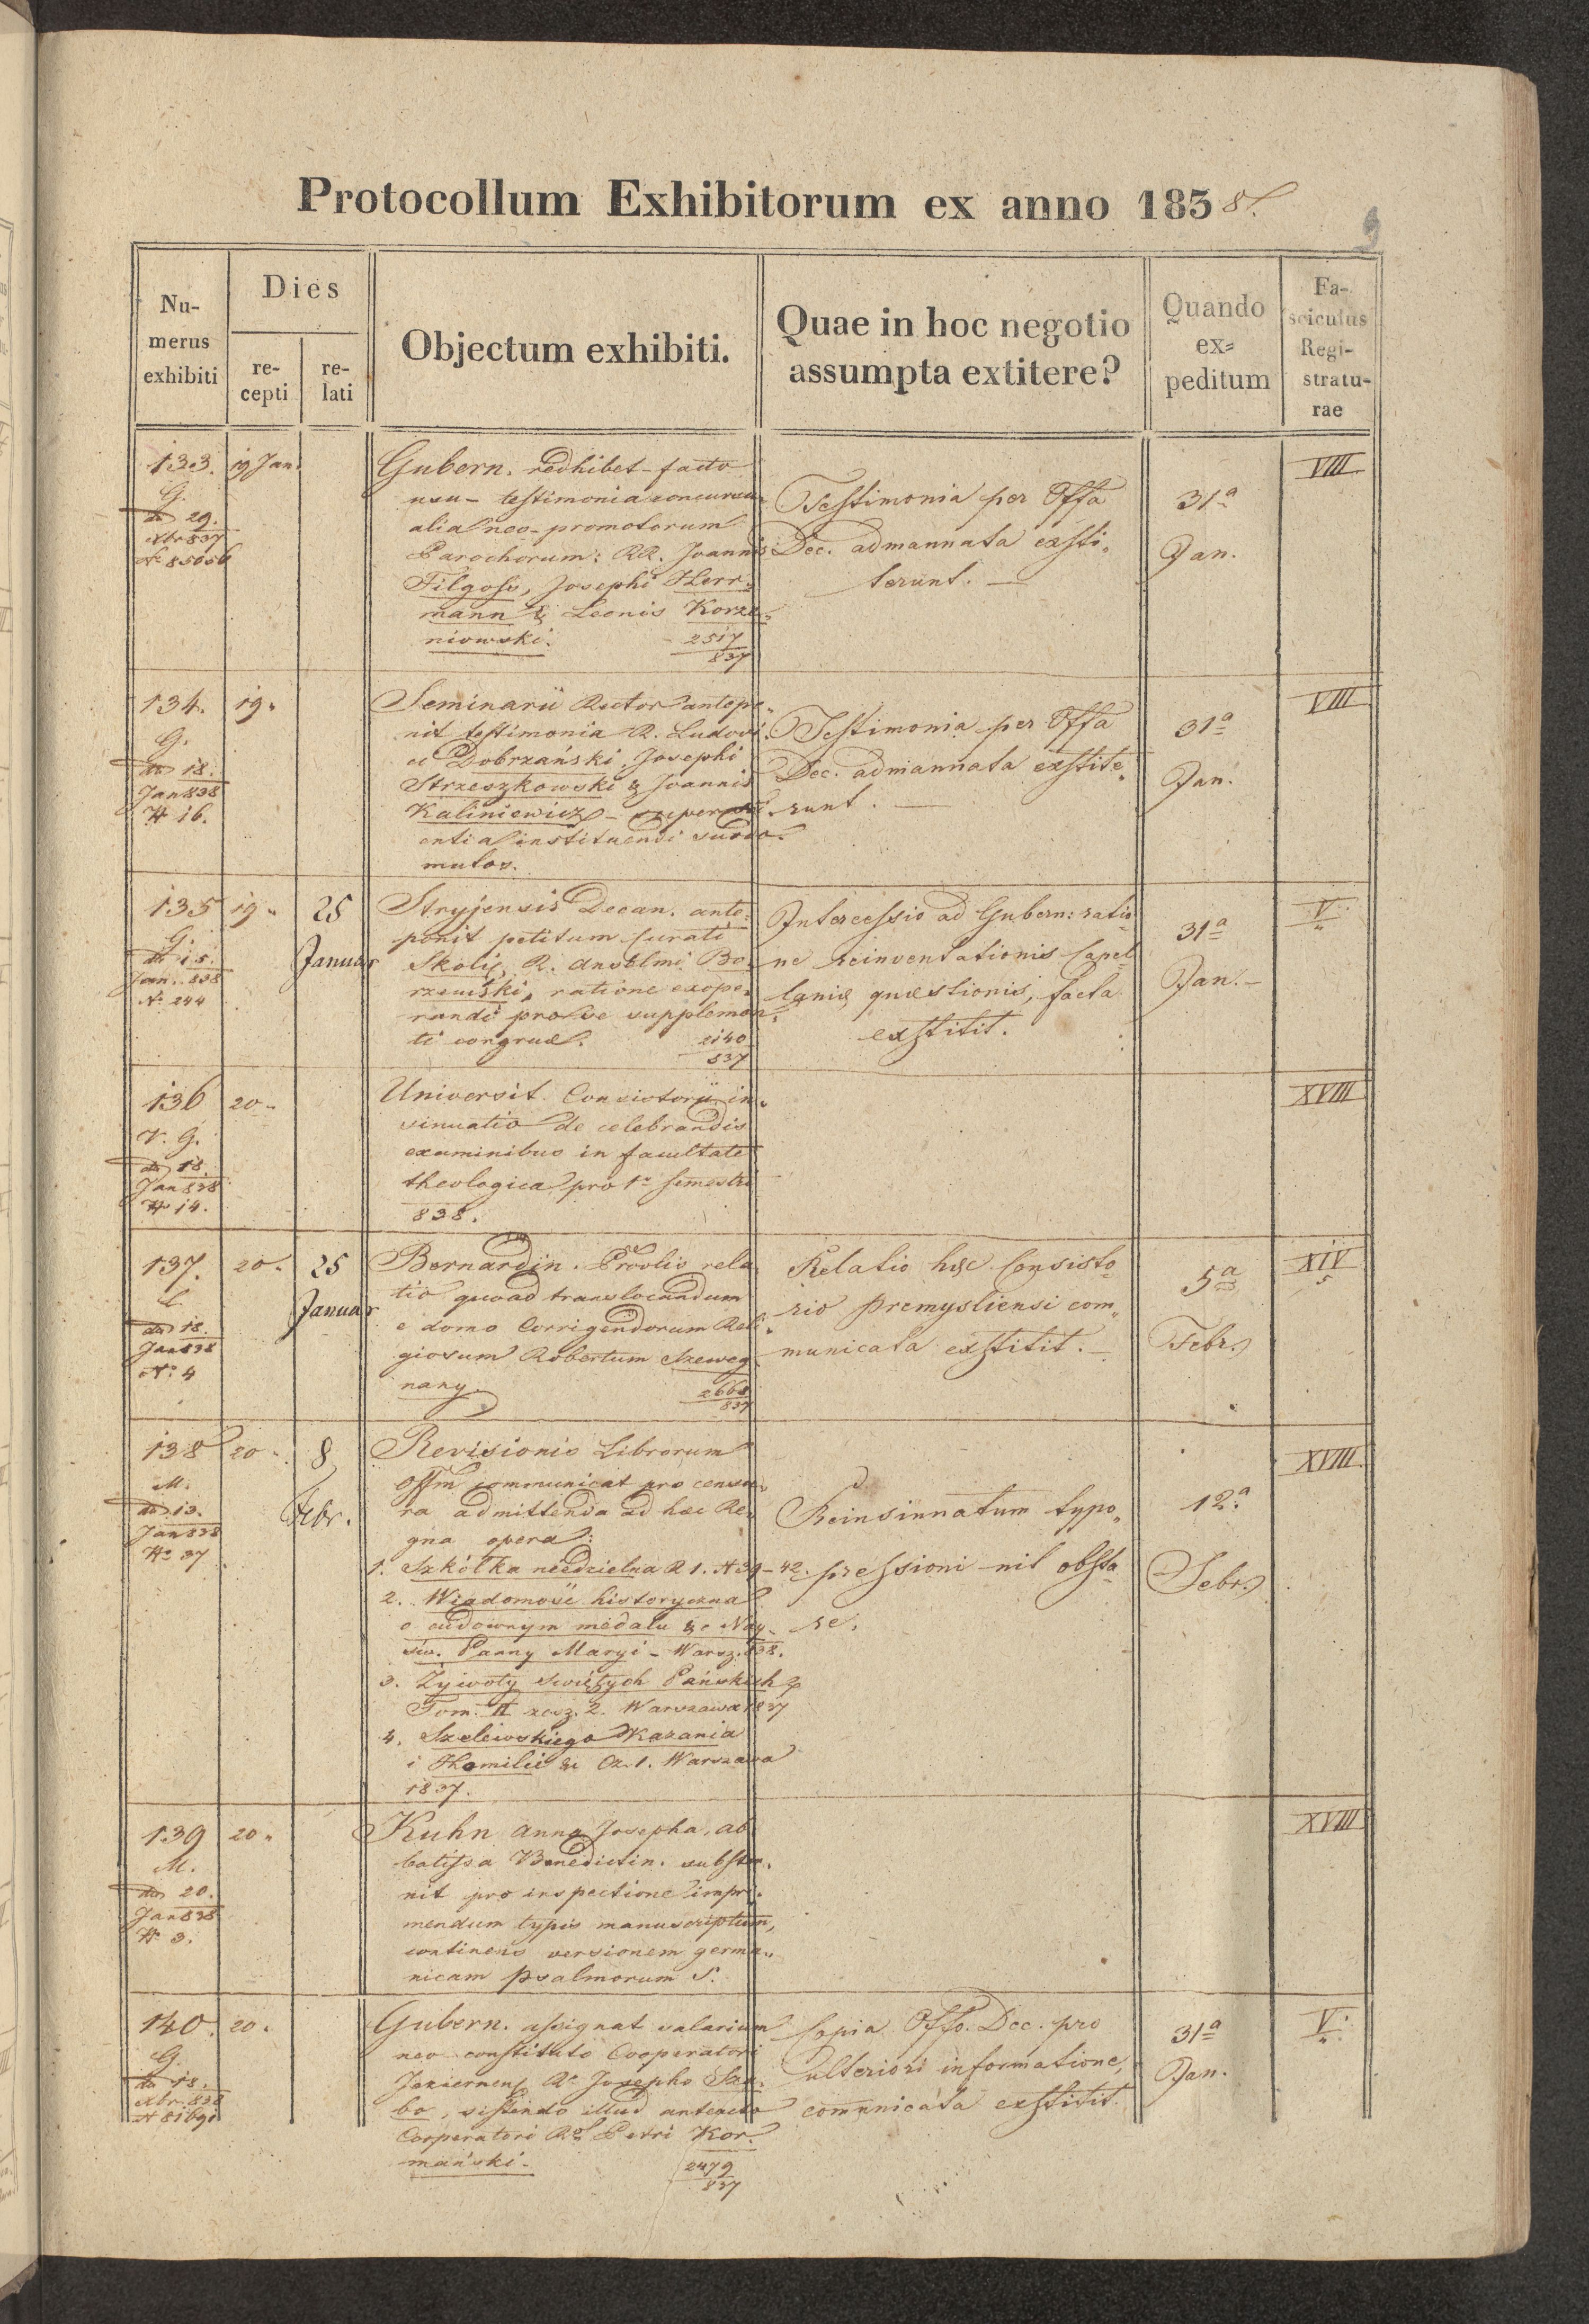 Protocollum Exhibitorum ex anno 1838.
9
Nu-
merus
exhibiti
Dies
re-
cepti
re-
lati
Objectum exhibiti.
Quae in hoc negotio
assumpta extitere?
Quando
ex=
peditum
Fa-
sciculus
Regi-
stratu-
rae
133. 19 Jan.
G.
dd 29.
Xbr 837
N. 85656
Gubern. redhibet facto
usu testimonia concursu-
alia neo-promotorum
Parochorum: RR. Joannis
Filgoss, Josephi Herr-
mann & Leonis Korze-
niowski. 2517
837
Testimonia per Offa
Dec. admannata exsti-
terunt. —
31a
Jan.
VIII
134. 19.
G.
dd 18.
Jan 838
N. 16.
Seminarii Rector antepo-
nit testimonia R. Ludovi-
ci Dobrzański, Josephi
Strzeszkowski & Joannis
Kaliniewicz
entia instituendi surdo-
mutos.
Testimonia per Offa
Dec. admannata exstite-
runt. —
31a
Jan.
VIII
135 19. 25
Januar
G.
dd 15.
Jan. 838
N. 244
Stryjensis Decan. ante-
ponit petitum Curati
Skoliç, R. Anselmi Bo-
rzemski, ratione exope-
randi pro se supplemen-
ti congruæ. 2140
837
Intercessio ad Gubern: ratio
ne reinventationis Capel-
laniæ quæstionis, facta
exstitit.
31a
Jan. —
V.
136 20.
V. G.
dd 18.
Jan 838
N. 14.
Universit. Consistorii in-
sinuatio de celebrandis
examinibus in facultate
theologica pro 1o Semestri
838.
XVIII
137. 20. 25
Januar
C.
dd 18.
Jan 838
N. 4
Bernardin. Provlis rela-
tio quoad translocandum
e domo Corrigendorum Reli-
giosum Robertum Szeweg-
nany. 2668
837
Relatio hæc Consisto-
rio Premysliensi com-
municata exstitit. —
5a
Febr.
XIV
138 20. 8
Febr.
M.
dd 13.
Jan 838
No 37
Revisionis Librorum
Offm communicat pro censu-
ra admittenda ad hæc Re-
gna opera:
1. Szkółka niedzielna R 1. N 39-42.
2. Wiadomość historyczna
o cudownym medalu &c Nay-
św. Panny Maryi - Warsz. 838.
3. Żywoty Świętych Pańskich &
Tom. II zesz. 2. Warszawa 1837
4. Szelewskiego Kazania
i Homilie &c Cz. 1. Warszawa
1837.
Reinsinuatum typo-
pressioni nil obsta-
re.
12a
Febr.
XVIII.
139 20.
M.
dd 20.
Jan 838
N. 3.
Kuhn Anna Josepha, ab-
batissa Benedictin. subster-
nit pro inspectione impri-
mendum typis manuscriptum,
continens versionem germa-
nicam psalmorum S.
XVIII
140. 20.
G.
dd 18.
Xbr. 838
N 81691
Gubern. assignat salarium
neo-constituto Cooperatori
Jeziernens Ro Josepho Sza-
bo, sistendo illud anteacto
Cooperatori Ro Petri Kor-
mański. 2479
837
Copia Offo. Dec. pro
ulteriori informatione,
comunicata exstitit.
31a
Jan.
V.